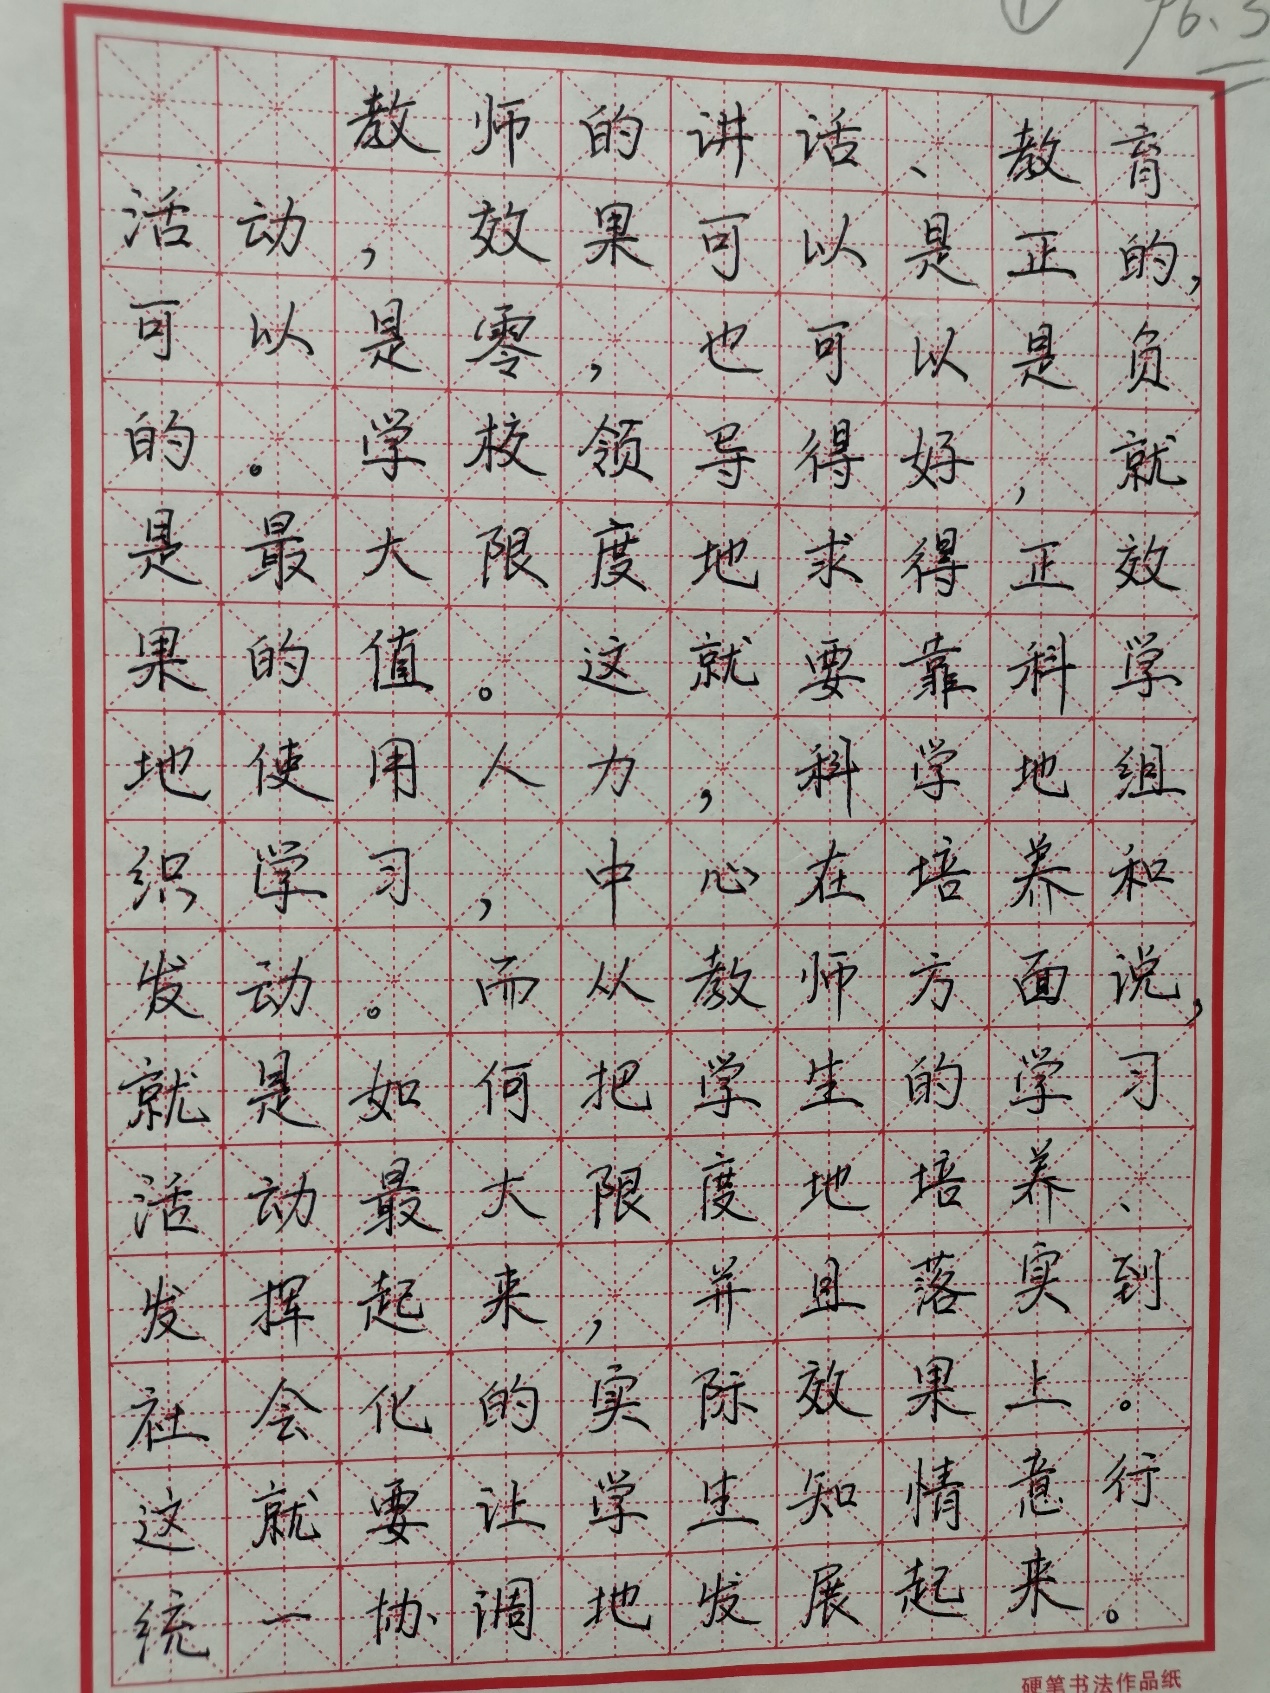 ① 96.5
教师的讲话、教育
活动，效果可以是正的，
可以是零，也可以是负
的。学校领导得好，就
是最大限度地求得正效
果的值。这就要靠科学
地使用人力，科学地组
织学习，中心在培养和
发动。而从教师方面说，
就是如何把学生的学习
活动最大限度地培养、
发挥起来，并且落实到
社会化的实际效果上。
这就要让学生知情意行
统一协调地发展起来。
硬笔书法作品纸